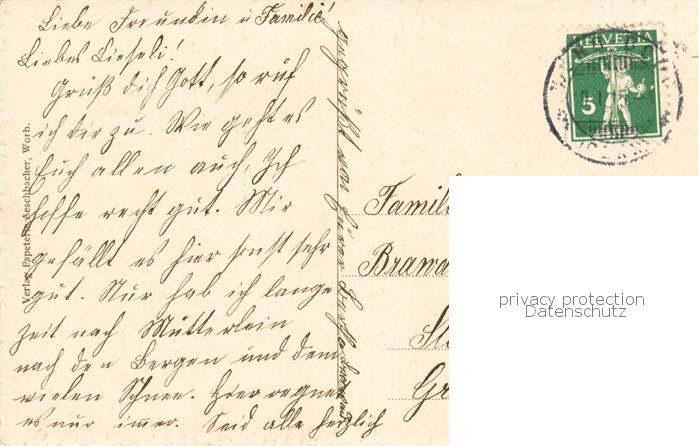 Liebe Freundin u Familie!
Liebes Lieseli!
Grüß dich Gott, so ruf
ich dir zu. Wie geht es
Euch allen auch, Ich
hoffe recht gut. Mir
gefällt es hier sonst sehr
gut. Nur hab ich lange
zeit nach Mütterlein
nach den Bergen und dem
vielen Schnee. Hier regne
es nur immer. Seid alle herzlich
gegrüßt von Eurer
Verlag Papeterie Aeschbacher, Worb.
HELVETIA
5
Famil
Brawa
Gr
privacy protection
Datenschutz